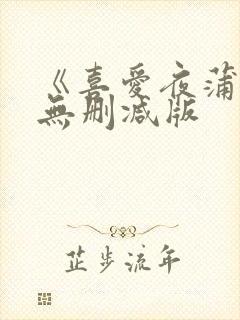 《喜愛夜蒲
無删减版
芷步流年